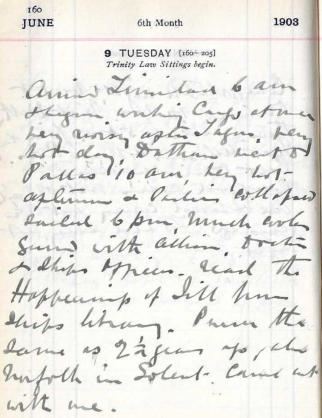 160
JUNE 6th Month 1903
9 TUESDAY [160-205]
Trinity Law Sittings begin.
Arrived Trinidad 6 am
& began working Cargo at once
very noisy after Tagus, very
hot day, went to
10 am, very hot
afternoon & collapsed
sailed 6 pm, much cooler
with Doctor
& Ships Officers. read the
Happenings of Jill from
Ships library. Purser the
same as 2½ years ago, also
Norfolk in Solent. Came out
with me.